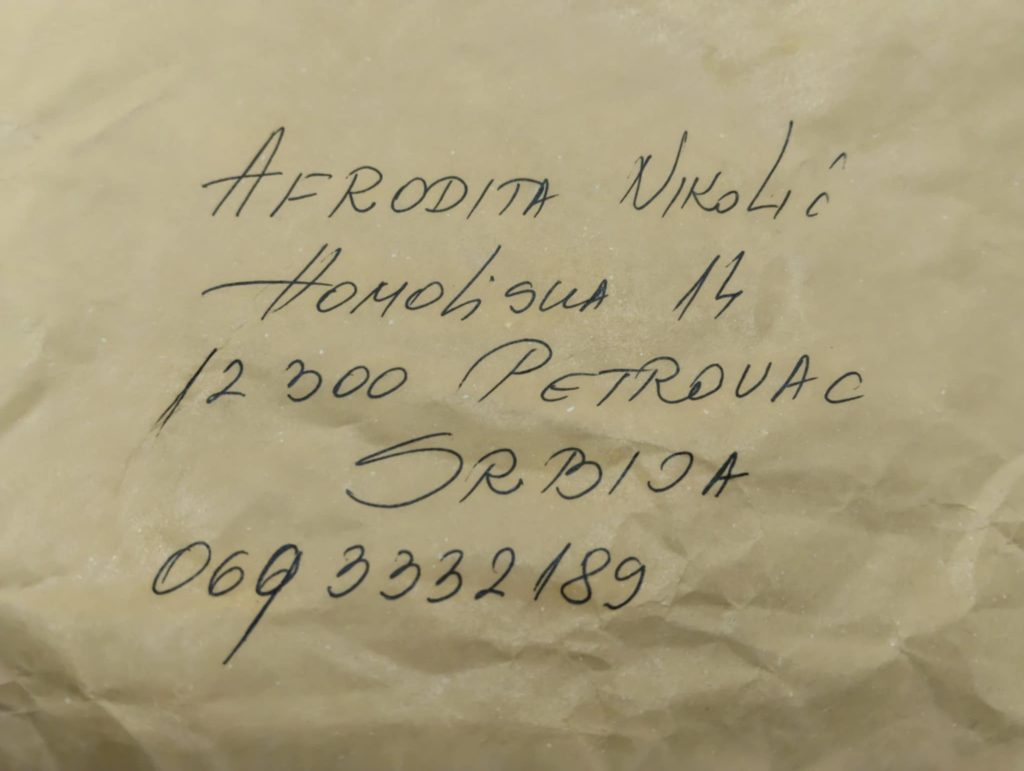 AFRODITA NIKOLIĆ
HOMOLJSKA 14
12300 PETROVAC
SRBIJA
069 3332189